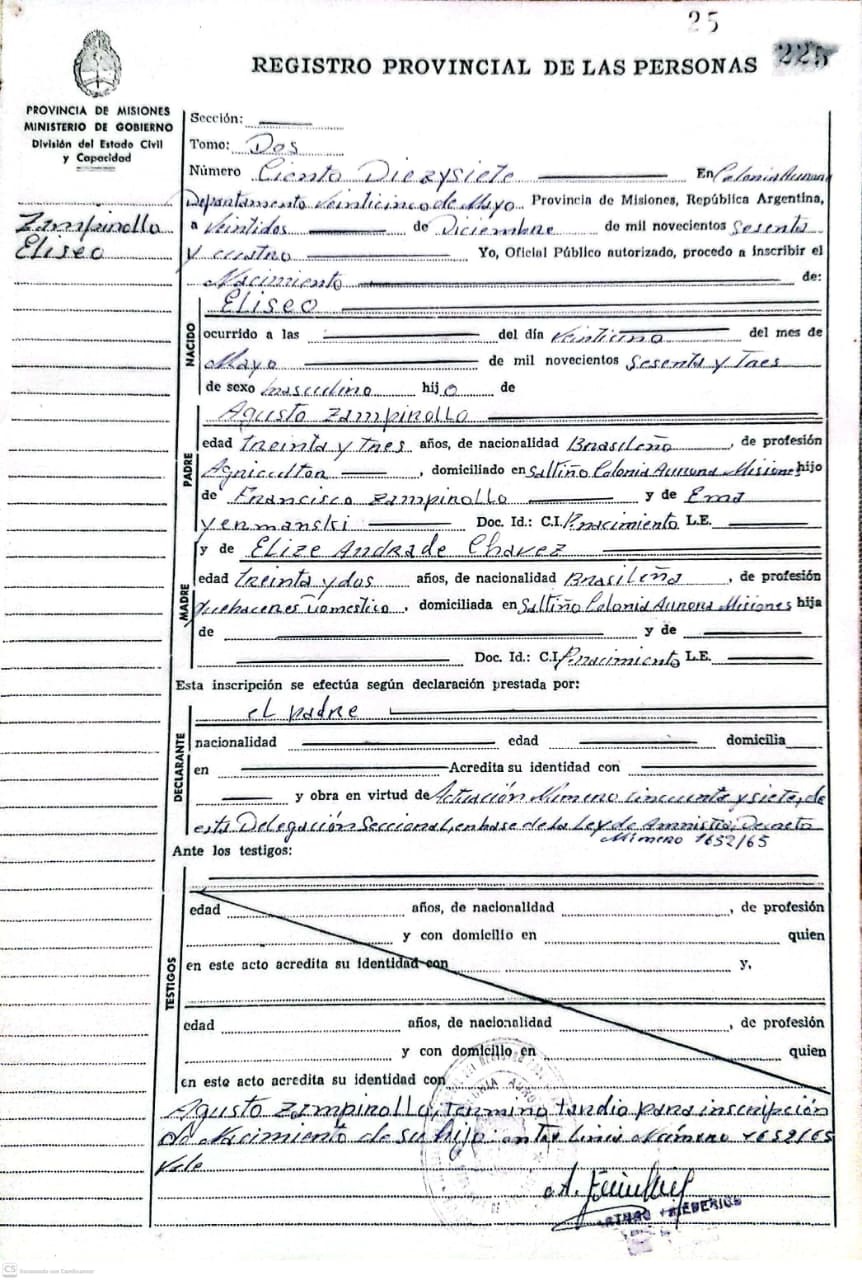 25
REGISTRO PROVINCIAL DE LAS PERSONAS 225
PROVINCIA DE MISIONES
MINISTERIO DE GOBIERNO
División del Estado Civil
y Capacidad
Zampirollo
Eliseo
Sección:
Tomo: Dos
Número Ciento Diezysiete En Colonia Aurora
Departamento Veinticinco de Mayo Provincia de Misiones, República Argentina,
a Veintidos de Diciembre de mil novecientos Sesenta
y cuatro Yo, Oficial Público autorizado, procedo a inscribir el
Nacimiento de:
NACIDO
Eliseo
ocurrido a las del día Veintiuno del mes de
Mayo de mil novecientos Sesenta y Tres
de sexo masculino hijo de
PADRE
Agusto Zampirollo
edad treinta y tres años, de nacionalidad Brasileño, de profesión
Agricultor, domiciliado en Saltiño Colonia Aurora Misiones hijo
de Francisco Zampirollo y de Ema
yermanski Doc. Id.: C.I. P.nacimiento L.E.
MADRE
y de Elize Andrade Chavez
edad treinta ydos años, de nacionalidad Brasileña, de profesión
quehaceres domestico, domiciliada en Saltiño Colonia Aurora Misiones hija
de y de
Doc. Id.: C.I P.nacimiento L.E.
Esta inscripción se efectúa según declaración prestada por:
DECLARANTE
el padre
nacionalidad edad domicilia
en Acredita su identidad con
y obra en virtud de Actuación Número cincuenta y siete, de
esta Delegación Seccional, en base de la Ley de Amnistia, Decreto
Número 1652/65
Ante los testigos:
TESTIGOS
edad años, de nacionalidad , de profesión
y con domicilio en quien
en este acto acredita su identidad con y,
edad años, de nacionalidad , de profesión
y con domicilio en quien
en este acto acredita su identidad con
Agusto Zampirollo, termino tardio para inscripción
de Nacimiento de su hijo: entre linia Número 1652/65
Vale
ARTURO FRIEDERICH
CS Escaneado con CamScanner